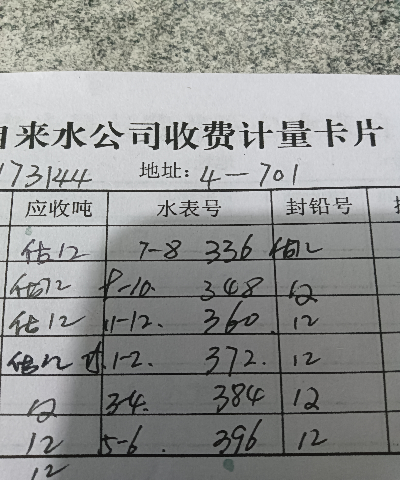 自来水公司收费计量卡片
173144 地址: 4-701
应收吨 水表号 封铅号
估12 7-8 336 估12
估12 9-10. 348 12
估12 11-12. 360. 12
估12 1-2. 372. 12
12 3-4. 384 12
12 5-6. 396 12
12